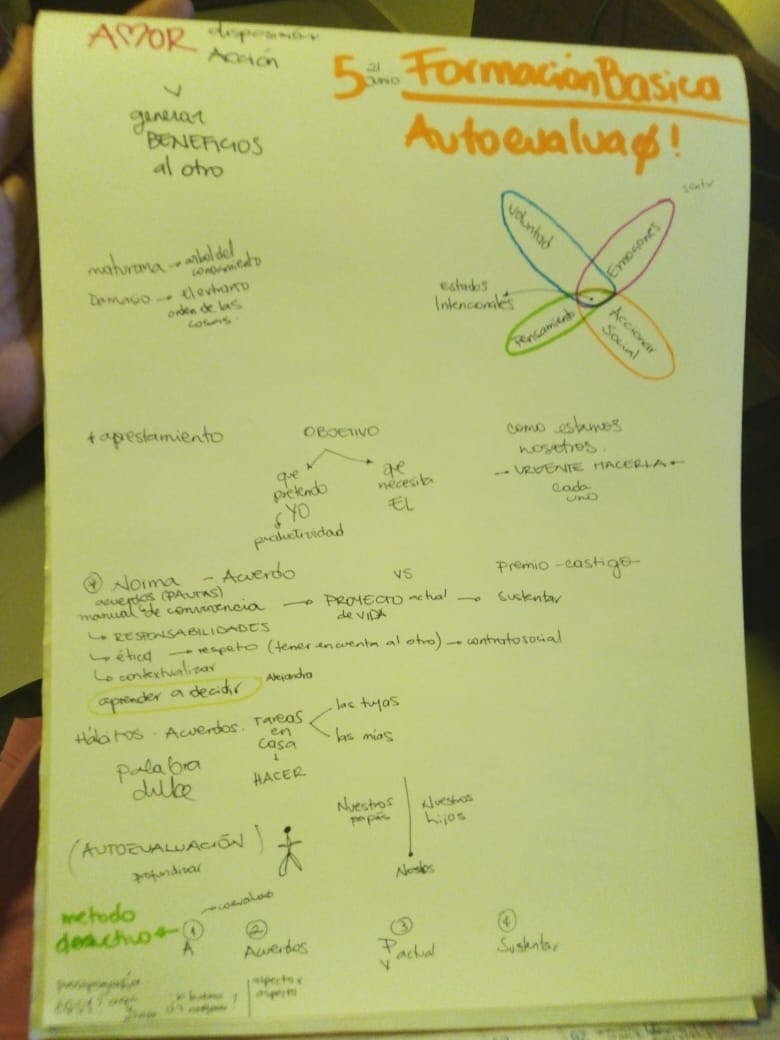 AMOR
disposición
Acción
generar
BENEFICIOS
al otro
5 21 junio Formación Basica
Autoevalua!
Voluntad
Emociones
sentir
Estados
Intencionales
Pensamiento
Accionar
Social
maturana → arbol del
conocimiento
Damasio → El extraño
orden de las
cosas.
+ aprestamiento
OBJETIVO
que
pretendo
YO
productividad
que
necesita
EL
como estamos
nosotros.
URGENTE HACERLA
cada
uno
Norma - Acuerdo vs Premio - castigo
acuerdos (PAUTAS)
manual de convivencia → PROYECTO actual → Sustentar
de VIDA
RESPONSABILIDADES
ética → respeto (tener en cuenta al otro) → contrato social
contextualizar
aprender a decidir
Alejandra
Hábitos - Acuerdos. Tareas
en
casa
las tuyas
las mías
HACER
Palabra
dulce
Nuestros
papás
Nuestros
hijos
(AUTOEVALUACIÓN)
profundizar
metodo
1 A
2 Acuerdos
3 P actual
V
4 Sustentar
aspecto x
aspecto